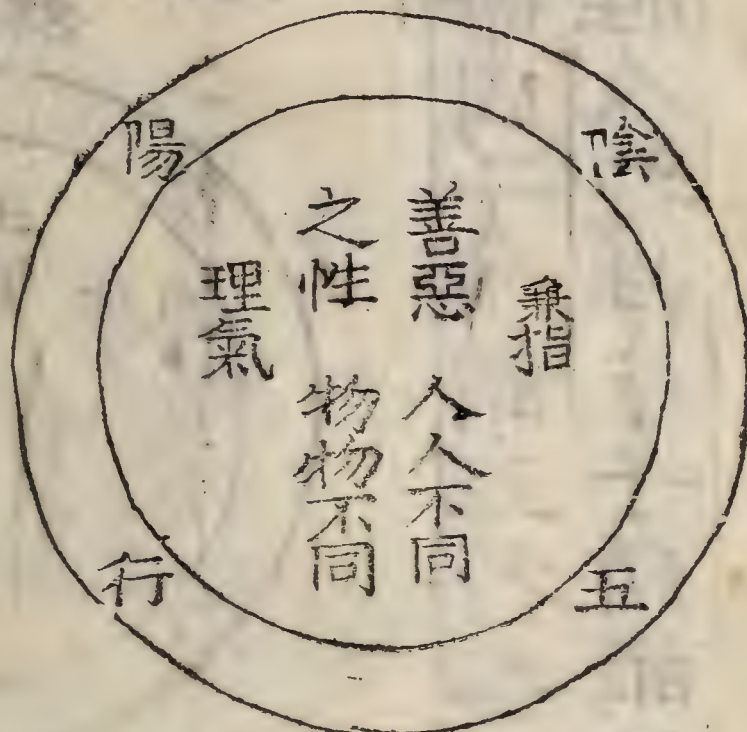 陰陽
五行
兼指
善惡
之性
理氣
人人不同
物物不同